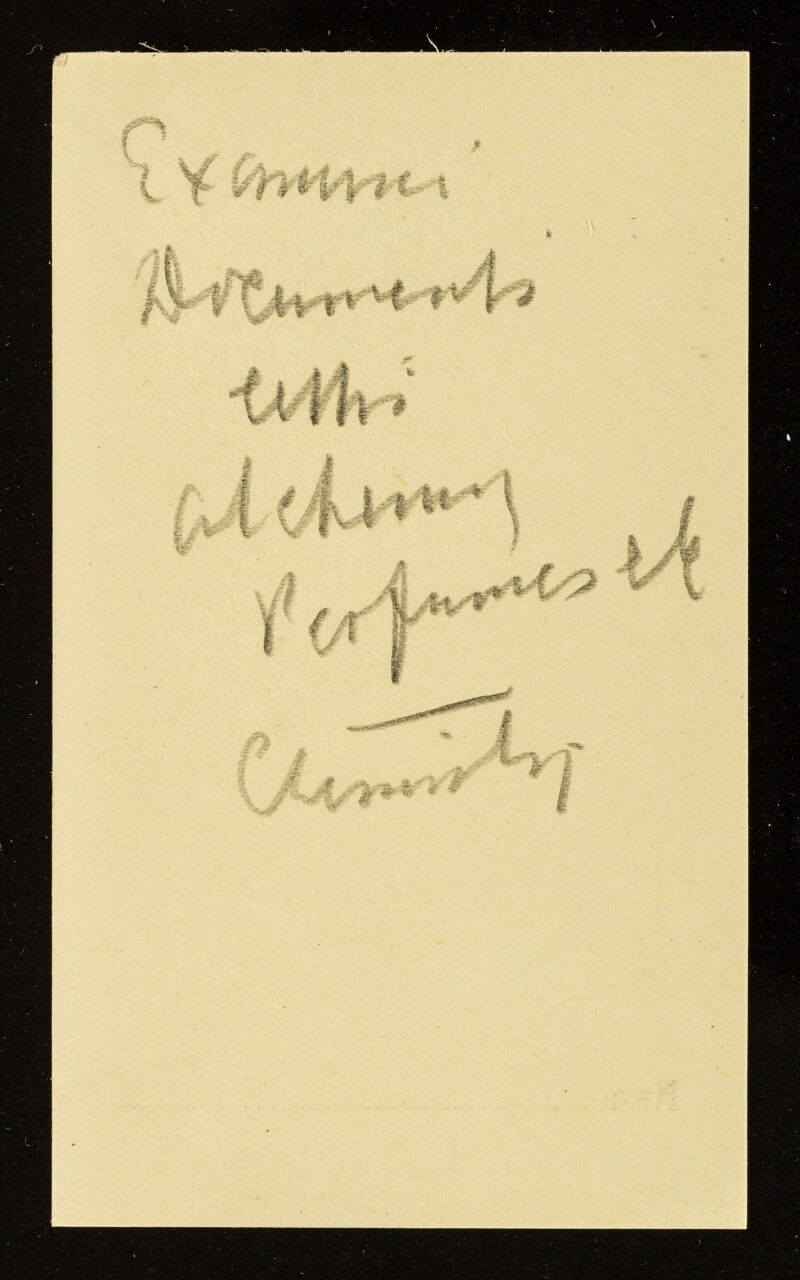 Examine
Documents
alchemy
Perfumes etc
Chemistry